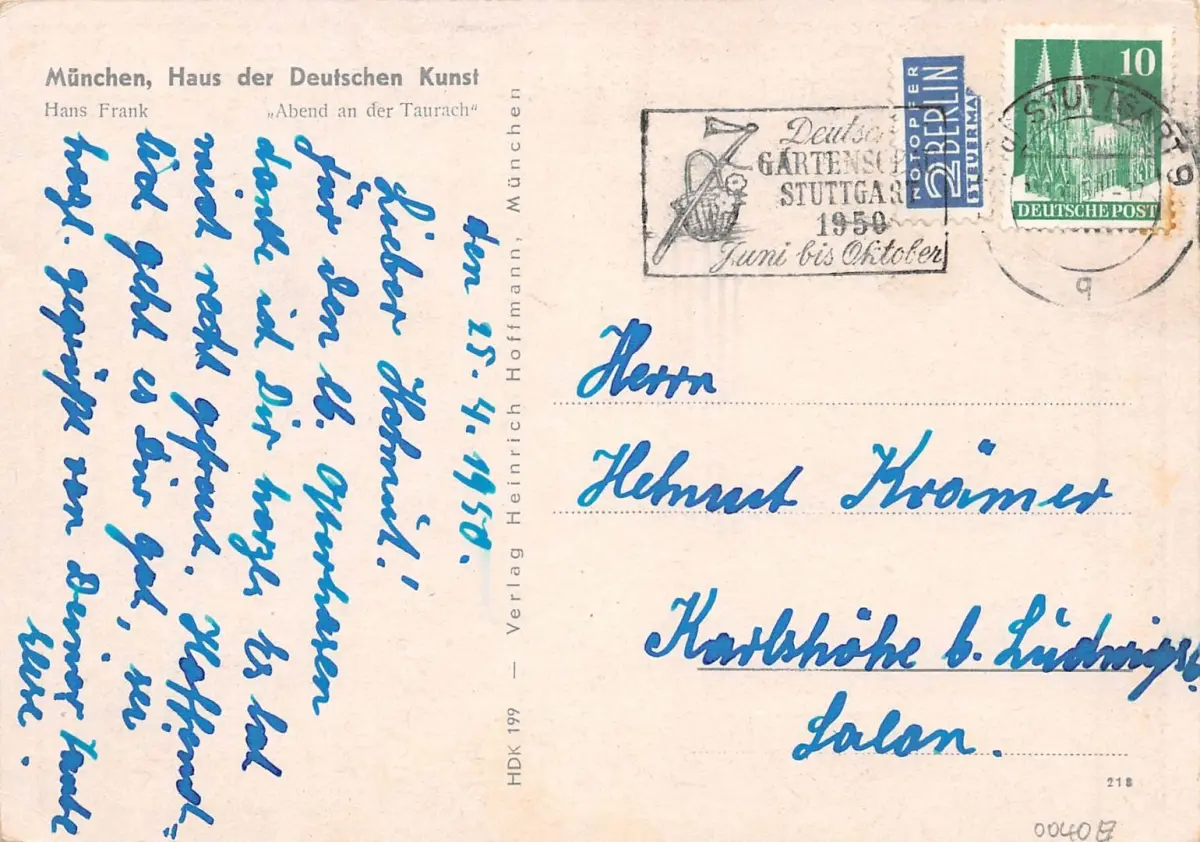 München, Haus der Deutschen Kunst
Hans Frank „Abend an der Taurach“
den 25.4.1950.
Lieber Helmut!
Für den lb. Osterhasen
danke ich Dir herzl. Es hat
mich recht gefreut. Hoffent=
lich geht es Dir gut, sei
herzl. gegrüßt von Deiner Tante
HDK 199 — Verlag Heinrich Hoffmann, München
Deutsche
GARTENSCHAU
STUTTGART
1950
Juni bis Oktober
NOTOPFER
2 BERLIN
STEUERMARKE
10
DEUTSCHE POST
STUTTGART 9
q
Herrn
Helmut Krämer
Karlshöhe b. Ludwigsb.
Salon.
218
0040E